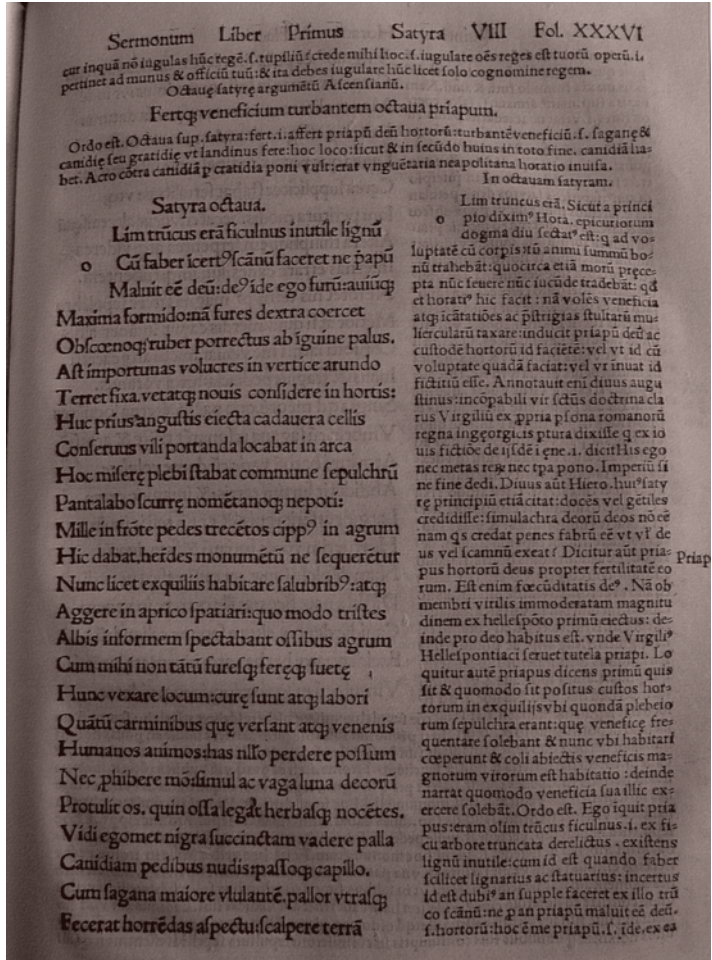 Sermonum Liber Primus Satyra VIII Fol. XXXVI
cur inquã nõ iugulas hũc regẽ.ſ.rupiliũ: crede mihi hoc.ſ.iugulare oẽs reges eſt tuorũ operũ.i.
pertinet ad munus & officiũ tuũ:& ita debes iugulare hũc licet ſolo cognomine regem.
Octauę ſatyrę argumẽtũ Aſcenſianũ.
Fertqꝫ veneficium turbantem octaua priapum.
Ordo eſt. Octaua ſup.ſatyra:fert.i.affert priapũ deũ hortorũ:turbantẽ veneficiũ.ſ. ſaganę &
canidię ſeu gratidię vt landinus fere:hoc loco:ſicut & in ſecũdo huius in toto fine. canidiã ha⸗
bet. Acro cõtra canidiã p cratidia poni vult:erat vnguẽtaria neapolitana horatio inuiſa.
In octauam ſatyram.
Satyra octaua.
o
Lim trũcus erã ficulnus inutile lignũ
Cũ faber ĩcertꝰ ſcãnũ faceret ne priapũ
Maluit eẽ deũ:deꝰ ĩde ego furũ:auiũqꝫ
Maxima formido:nã fures dextra coercet
Obſcœnoqꝫ ruber porrectus ab ĩguine palus.
Aſt importunas volucres in vertice arundo
Terret fixa.vetatqꝫ nouis conſidere in hortis:
Huc prius anguſtis eiecta cadauera cellis
Conſeruus vili portanda locabat in arca
Hoc miſerę plebi ſtabat commune ſepulchrũ
Pantalabo ſcurrę nomẽtanoqꝫ nepoti:
Mille in frõte pedes trecẽtos cippꝰ in agrum
Hic dabat.herẽdes monumẽtũ ne ſequerẽtur
Nunc licet exquiliis habitare ſalubribꝰ:atqꝫ
Aggere in aprico ſpatiari:quo modo triſtes
Albis informem ſpectabant oſſibus agrum
Cum mihi non tãtũ fureſqꝫ feręqꝫ ſuetę
Hunc vexare locum:curę ſunt atqꝫ labori
Quãtũ carminibus quę verſant atqꝫ venenis
Humanos animos:has nllo perdere poſſum
Nec ꝓhibere mõ:ſimul ac vaga luna decorũ
Protulit os. quin oſſa legãt herbaſqꝫ nocẽtes.
Vidi egomet nigra ſuccinctam vadere palla
Canidiam pedibus nudis:paſſoqꝫ capillo.
Cum ſagana maiore vlulantẽ.pallor vtraſqꝫ
Fecerat horrẽdas aſpectu:ſcalpere terrã
o
Lim truncus erã. Sicut a princi
pio diximꝰ Hora. epicuriorum
dogma diu ſectatꝰ eſt:q ad vo⸗
luptatẽ cũ corpis:tũ animi ſummũ bo⸗
nũ trahebãt:quocirca etiã morũ pręce⸗
pta nũc ſeuere nũc iucũde tradebãt: qđ
et horatiꝰ hic facit: nã volẽs veneficia
atqꝫ ĩcãtatiões ac p̃ſtrigias ſtultarũ mu⸗
liercularũ taxare:inducit priapũ deũ ac
cuſtodẽ hortorũ id faciẽtẽ:vel vt id cũ
voluptate quadã faciat:vel vt inuat id
fictitiũ eſſe. Annotauit enĩ diuus augu
ſtinus:incõpabili vir ſctũs doctrina cla
rus Virgiliũ ex ꝓpria pſona romanorũ
regna in georgicis ptura dixiſſe q ex io
uis fictiõe de ijſdẽ i ęne.i. dicit His ego
nec metas reꝝ nec tpa pono. Imperiũ ſi
ne fine dedi. Diuus aũt Hiero.huiꝰ ſaty
rę principiũ etiã citat:docẽs vel gẽtiles
credidiſſe:ſimulachra deorũ deos nõ eẽ
nam qs credat penes fabrũ eẽ vt vl̃ de
us vel ſcamnũ exeat? Dicitur aũt pria⸗
pus hortorũ deus propter fertilitatẽ eo
rum. Eſt enim fœcũditatis deꝰ. Nã ob
membri virilis immoderatam magnitu
dinem ex helleſpõto primũ eiectus: de⸗
inde pro deo habitus eſt.vnde Virgiliꝰ
Helleſpontiaci ſeruet tutela priapi. Lo
quitur autẽ priapus dicens primũ quis
ſit & quomodo ſit poſitus cuſtos hor⸗
torum in exquilijs vbi quondã plebeio
rum ſepulchra erant:quę veneficę fre⸗
quentare ſolebant & nunc vbi habitari
cœperunt & coli abiectis veneficis ma⸗
gnorum virorum eſt habitatio : deinde
narrat quomodo veneficia ſua illic ex⸗
ercere ſolebãt. Ordo eſt. Ego iquit pria
pus:eram olim trũcus ficulnus.i. ex fi⸗
cu arbore truncata derelictus . exiſtens
lignũ inutile:cum id eſt quando faber
ſcilicet lignarius ac ſtatuarius: incertus
id eſt dubiꝰ an ſupple faceret ex illo trũ
co ſcãnũ:ne p an priapũ maluit eẽ deũ.
ſ.hortorũ:hoc ẽ me priapũ.ſ. ĩde.ex ea
Priap